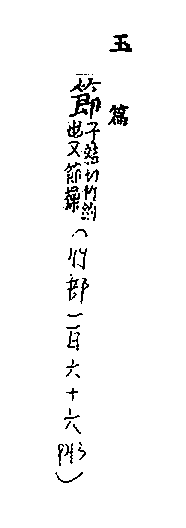 玉篇
節 子結切竹節
也又節操
(竹部一百六十六)